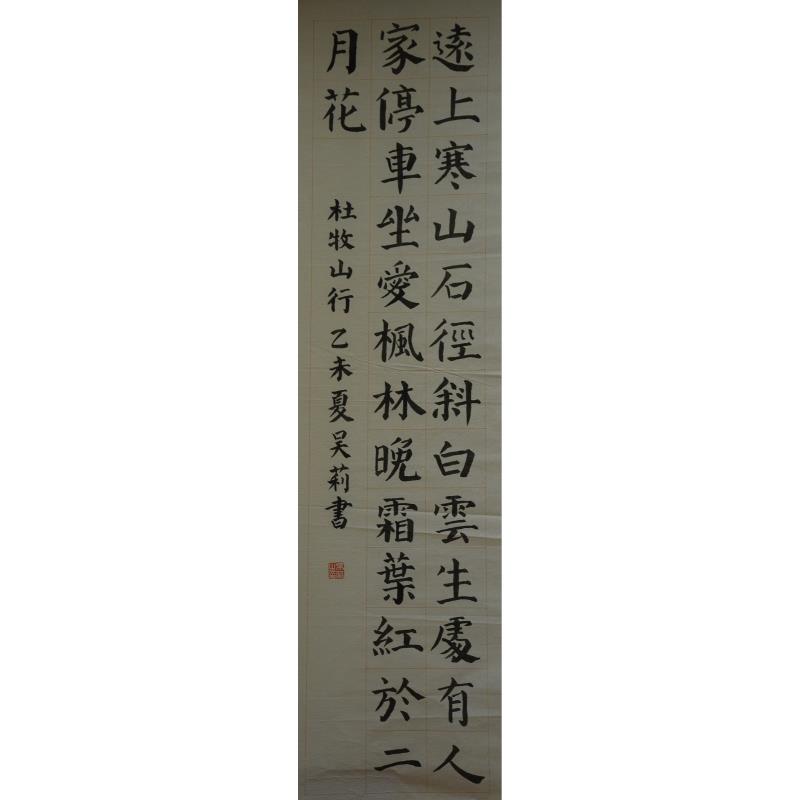 遠上寒山石徑斜白雲生處有人
家停車坐愛楓林晚霜葉紅於二
月花
杜牧山行乙未夏吴莉書